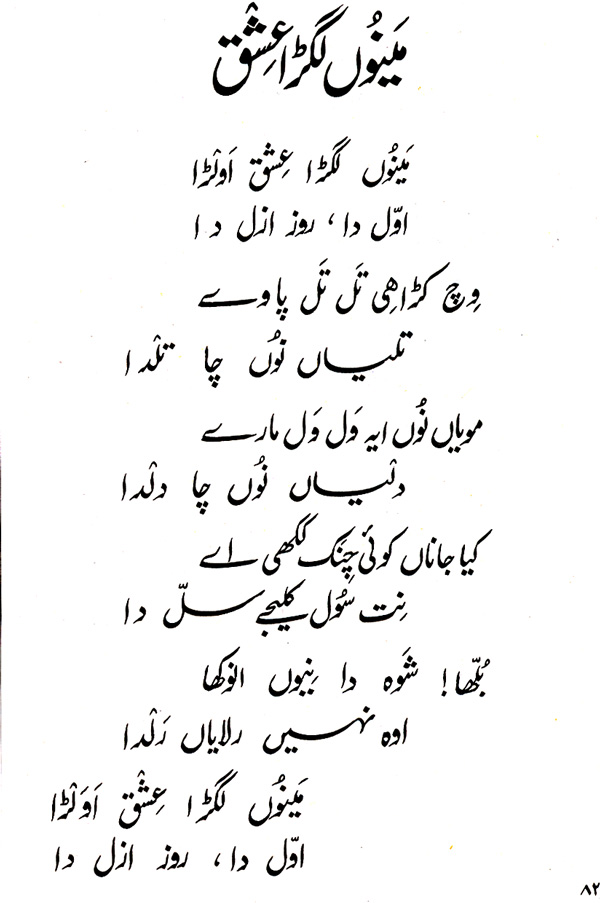 مَینُوں لگڑا عِشق
مَینُوں لگڑا عِشق اَولڑا
اوّل دا، روز ازل دا
وِچ کڑاھِی تَل تَل پاوے
تلیاں نُوں چا تلْدا
مویاں نُوں ایہ وَل وَل مارے
دلیاں نُوں چا دلْدا
کیا جاناں کوئی چِنَک لگھی اے
نِت سُول کلیجے سلّ دا
بُلّھا! شَوہ دا نِیوں انوکھا
اوہ نہیں رلایاں رَلْدا
مَینُوں لگڑا عِشْق اَوَلڑا
اوّل دا، روز ازل دا
۸۲